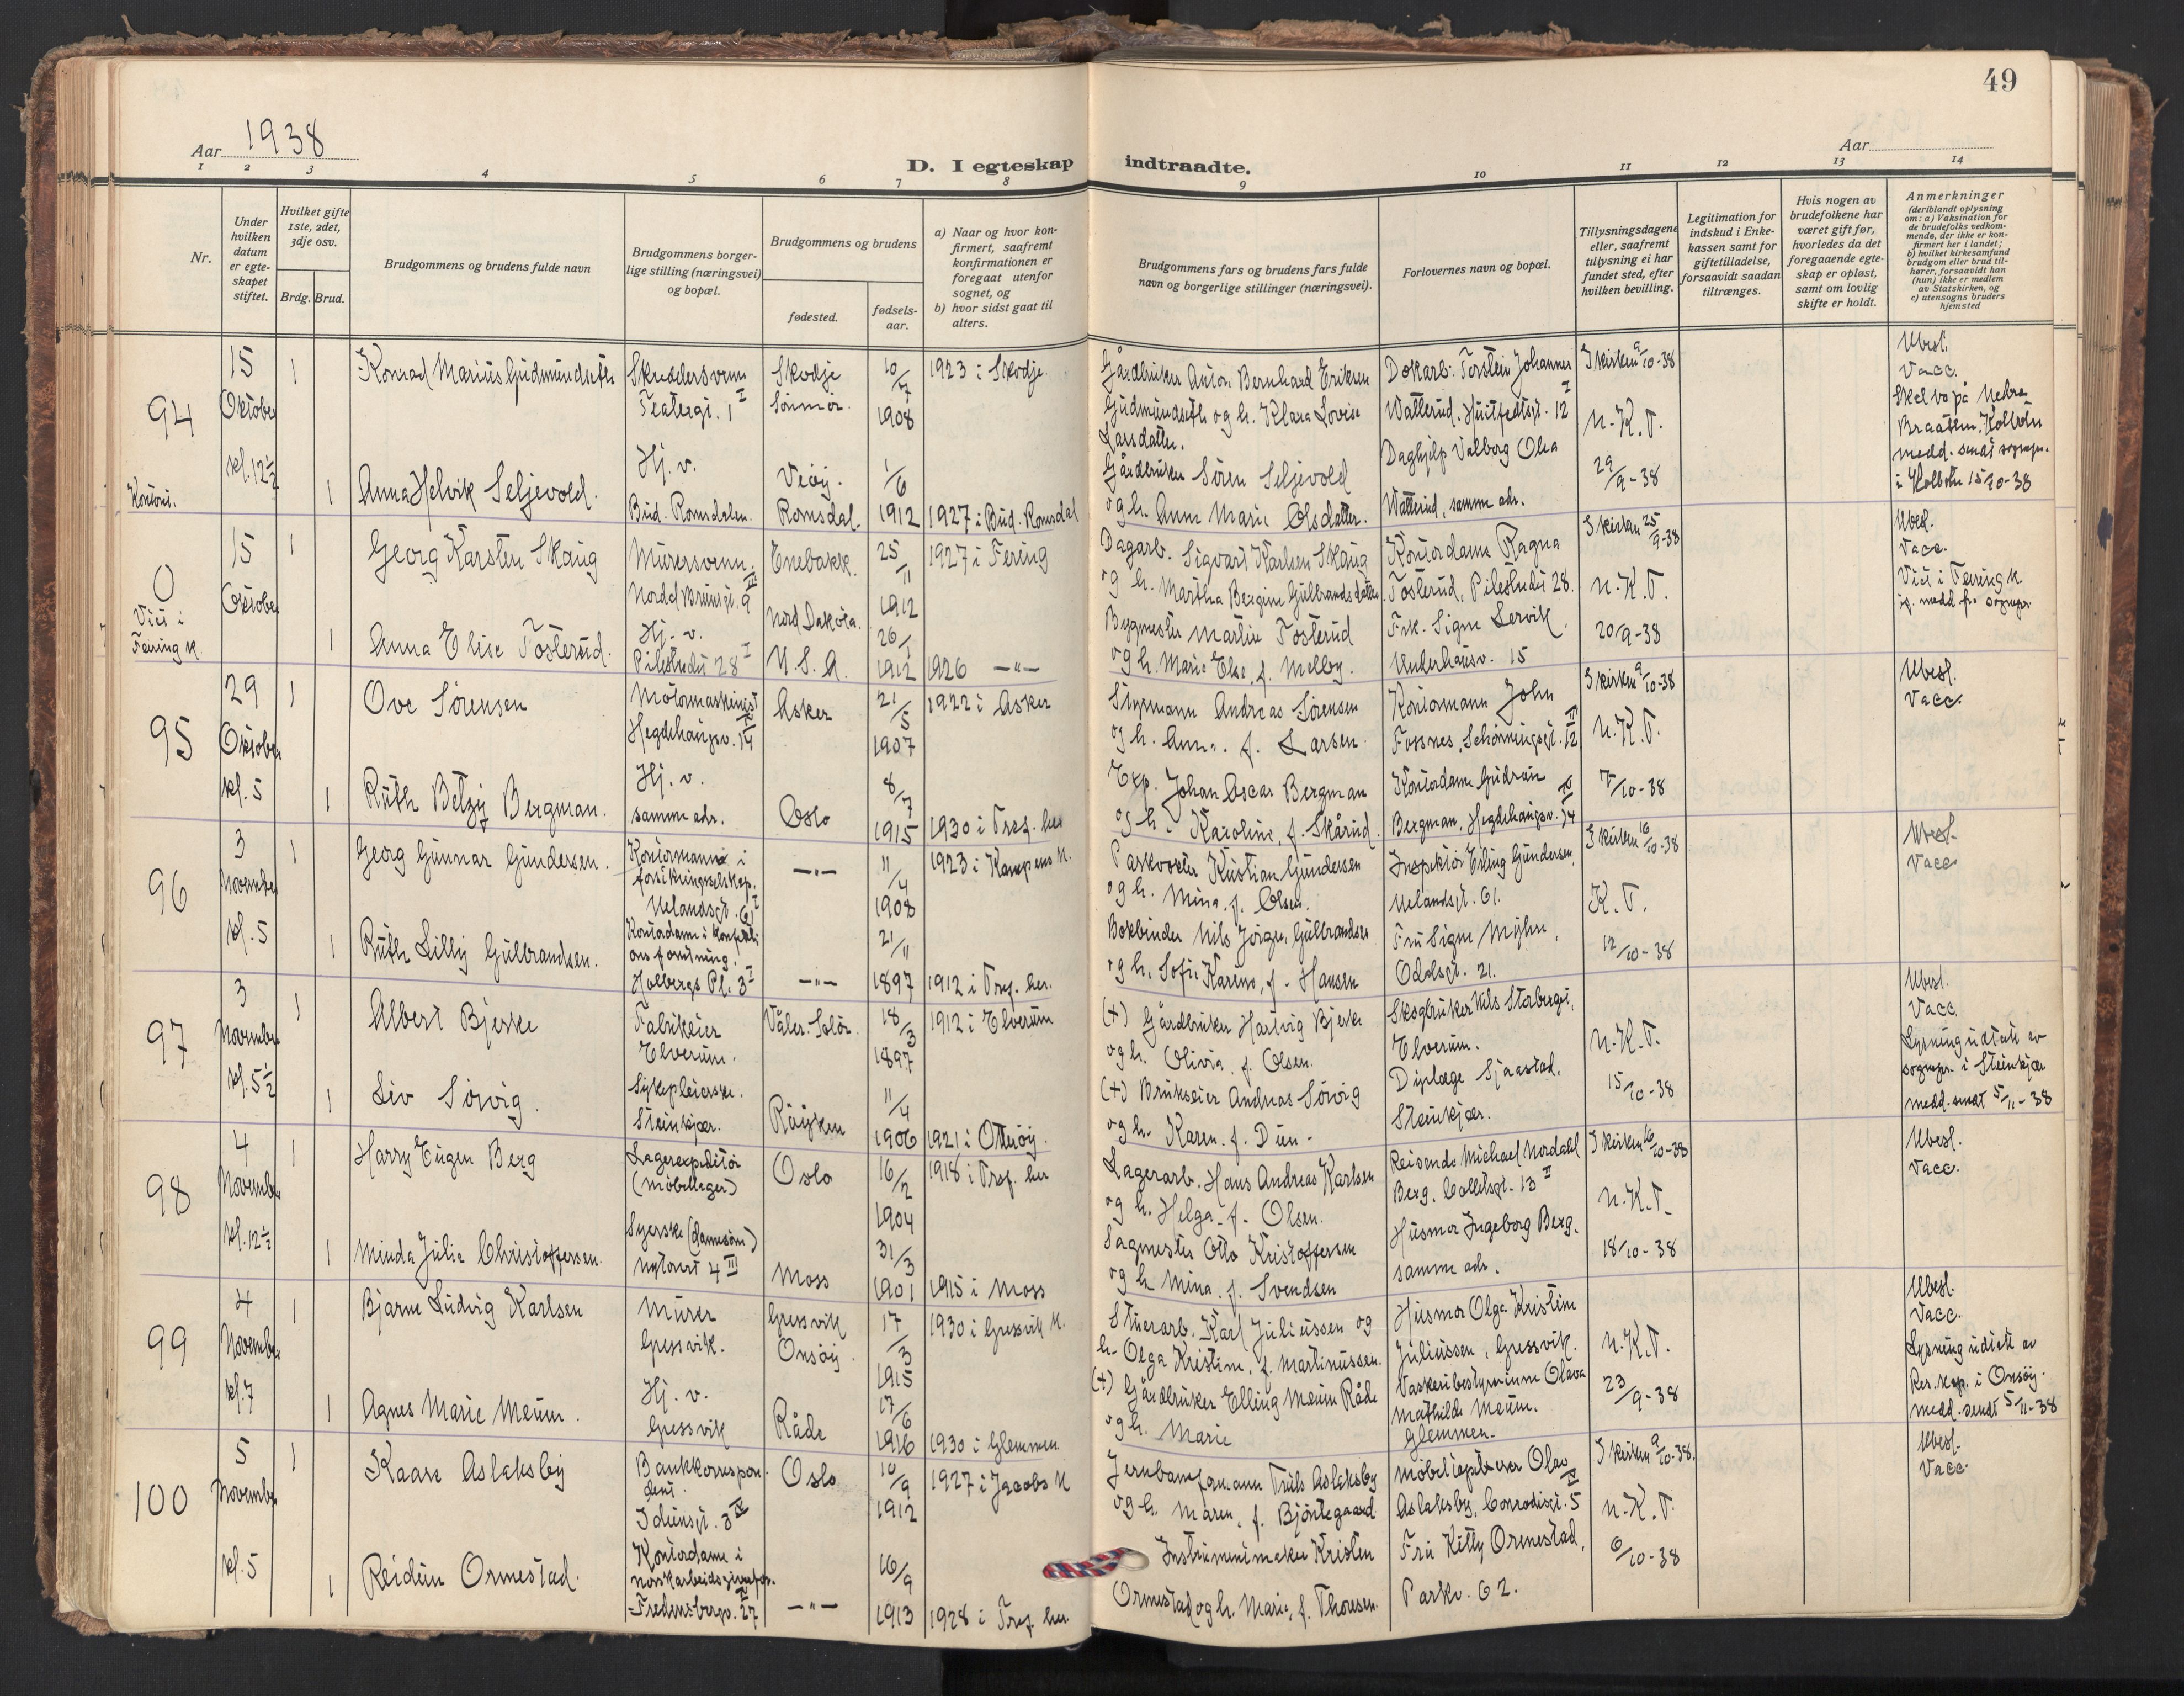 49
Aar 1938
Aar
D. I egteskap indtraadte.
1 2 3 4 5 6 7 8 9 10 11 12 13 14
Nr.
Under hvilken datum er egteskapet stiftet.
Hvilket gifte 1ste, 2det, 3dje osv.
Brdg. Brud.
Brudgommens og brudens fulde navn
Brudgommens borgerlige stilling (næringsvei) og bopæl.
Brudgommens og brudens
fødested.
fødselsaar.
a) Naar og hvor konfirmert, saafremt konfirmationen er foregaat utenfor sognet, og
b) hvor sidst gaat til alters.
Brudgommens fars og brudens fars fulde navn og borgerlige stillinger (næringsvei).
Forlovernes navn og bopæl.
Tillysningsdagene eller, saafremt tillysning ei har fundet sted, efter hvilken bevilling.
Legitimation for indskud i Enkekassen samt for giftetilladelse, forsaavidt saadan tiltrænges.
Hvis nogen av brudefolkene har været gift før, hvorledes da det foregaaende egteskap er opløst, samt om lovlig skifte er holdt.
Anmerkninger (deriblandt oplysning om: a) Vaksination for de brudefolks vedkommende, der ikke er konfirmert her i landet; b) hvilket kirkesamfund brudgom eller brud tilhører, forsaavidt han (hun) ikke er medlem av Statskirken, og c) utensogns bruders hjemsted
94
15 Oktober kl. 12½
1 Konrad Marius Gudmundseth
Skreddersvenn Teatergt. 1 I
Skodje Sunmør.
10/7 1908
1923 i Skodje.
Gårdbruker Anton Bernhard Eriksen Gudmundseth og h. Klara Lovise Larsdatter.
Dokarb. Torstein Johannes Watterud, Huitfeldtsgt. 12 I
I kirken 9/10-38
N.K.T.
29/9-38
Ubesl.
Vacc.
Skal bo på Nedre Braaten, Kolbotn
medd. sendt sognepr. i Kolbotn 15/10-38
Kontoris.
1 Anna Helvik Seljevold.
Hj. v.
Bud. Romsdalen.
Veøy. Romsdal.
1/6 1912
1927 i Bud. Romsdal
Gårdbruker Søren Seljevold og h. Anne Marie Olsdatter.
Daghjelp Valborg Olea Watterud, samme adr.
0
Viet i Feiring k.
15 Oktober
1 Georg Karsten Skaug
Murersvenn. Nordal Brunsgt. 9 III
Enebakk.
25/11 1912
1927 i Feiring
Dagarb. Sigvart Karlsen Skaug og h. Martha Bergine Gulbrandsdatter.
Kontordame Ragna Tosterud, Pilestredet 28.
I kirken 25/9-38
N.K.T.
20/9-38
Ubesl.
Vacc.
Viet i Feiring k.
ig. medd. fra sognepr.
1 Anna Elise Tosterud.
Hj. v. Pilestredet 28 I
Nord Dakota. U.S.A.
26/1 1912
1926 —"—
Bygmester Martin Tosterud og h. Marie Else, f. Melby.
Frk. Signe Lervik, Underhausv. 15
95
29 Oktober kl. 5
1 Ove Sørensen
Motormaskinist Hegdehaugsv. 14 IV
Asker
21/5 1907
1922 i Asker
Styrmann Andreas Sørensen og h. Anna. f. Larsen.
Kontormann John Fossnes, Schønningsgt. 12 III
I kirken 9/10-38
N.K.T.
7/10-38
Ubesl.
Vacc.
1 Ruth Betzy Bergman.
Hj. v. samme adr.
Oslo
8/7 1915
1930 i Tref. her
Exp. Johan Oscar Bergman og h. Karoline, f. Skårud.
Kontordame Gudrun Bergman, Hegdehaugsv. 14 IV
96
3 November kl. 5
1 Georg Gunnar Gundersen.
Kontormann i forsikringsselskap. Uelandsgt. 61 I
—"—
11/4 1908
1923 i Kampens k.
Parkvokter Kristian Gundersen og h. Mina. f. Olsen.
Inspektør Erling Gundersen, Uelandsgt. 61.
I kirken 16/10-38
K.T.
12/10-38
Ubesl.
Vacc.
1 Ruth Lilly Gulbrandsen.
Kontordame i konfeksjonsforretning. Holbergs Pl. 3 I
—"—
21/11 1897
1912 i Tref. her.
Bokbinder Nils Jørgen Gulbrandsen og h. Sofie Karine, f. Hansen
Fru Signe Myhre, Odalsgt. 21.
97
3 November kl. 5½
1 Albert Bjerke
Fabrikeier Elverum.
Våler. Solør.
18/3 1897
1912 i Elverum
(+) Gårdbruker Hartvig Bjerke og h. Olivia, f. Olsen.
Skogbruker Nils Storberget, Elverum.
N.K.T.
15/10-38
Ubesl.
Vacc.
Lysning utstedt av sognepr. i Steinkjær
medd. sendt 5/11-38
1 Liv Sørvig.
Sykepleierske. Steinkjær.
Røyken
11/4 1906
1921 i Otterøy.
(+) Brukseier Andreas Sørvig og h. Karen. f. Duen.
Dyrlæge Sjaastad, Steinkjær.
98
4 November kl. 12½
1 Harry Eugen Berg
Lagerexpeditør (møbellager)
Oslo
16/2 1904
1918 i Tref. her
Lagerarb. Hans Andreas Karlsen og h. Helga. f. Olsen.
Reisende Michael Nordahl Berg, Collettsgt. 13 II
I kirken 16/10-38
N.K.T.
18/10-38
Ubesl.
Vacc.
1 Minda Julie Christoffersen.
Syerske (damesøm) Nytorvet 4 III
Moss
31/3 1901
1915 i Moss
Sagmester Otto Kristoffersen og h. Mina, f. Svendsen
Husmor Ingeborg Berg, samme adr.
99
4 November kl. 7
1 Bjarne Ludvig Karlsen
Murer Gressvik.
Gressvik Onsøy.
17/3 1915
1930 i Gressvik k.
Stuerarb. Karl Juliussen og h. Olga Kristine, f. Martinussen.
Husmor Olga Kristine Juliussen, Gressvik.
N.K.T.
23/9-38
Ubesl.
Vacc.
Lysning utstedt av Res. kap. i Onsøy.
medd. sendt 5/11-38
1 Agnes Marie Meum.
Hj. v. Gressvik
Råde
17/6 1916
1930 i Glemmen
(+) Gårdbruker Elling Meum Råde og h. Marie
Vaskeribestyrerinne Olava Mathilde Meum. Glemmen.
100
5 November kl. 5
1 Kaare Aslaksby
Bankkorrespondent. Iduns gt. 3 IV
Oslo
10/9 1912
1927 i Jacobs k
Jernbanefomann Truls Aslaksby og h. Maren, f. Bjørtegaard
Møbeltapetserer Olav Aslaksby, Conradisgt. 5 IV
I kirken 9/10-38.
N.K.T.
6/10-38
Ubesl.
Vacc.
1 Reidun Ormestad.
Kontordame i norsk arbeidsgiverfor. Fredensborgv. 27 IV
—"—
16/9 1913
1928 i Tref. her.
Instrumentmaker Kristen Ormestad og h. Marie, f. Thoresen.
Fru Kitty Ormestad, Parkv. 62.